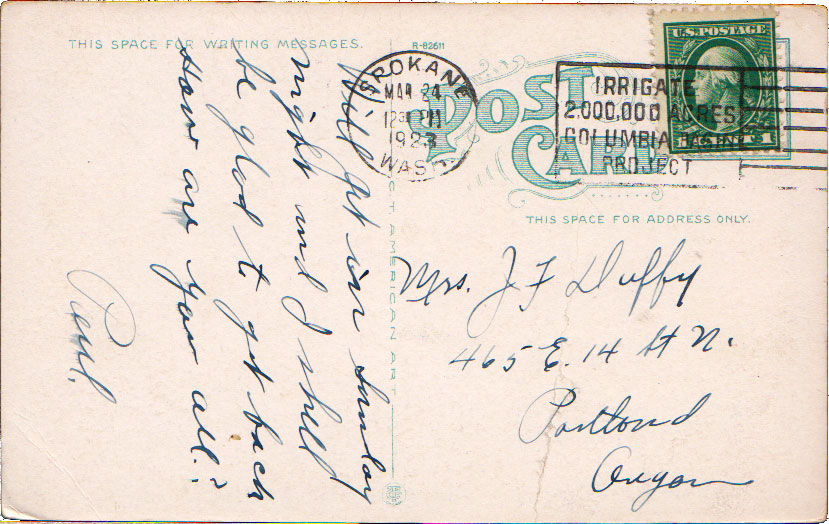 THIS SPACE FOR WRITING MESSAGES.
R-82611
POST
CARD
SPOKANE
MAR 24
12 30 PM
1923
WASH
IRRIGATE
2,000,000 ACRES
COLUMBIA BASIN
PROJECT
U.S. POSTAGE
THIS SPACE FOR ADDRESS ONLY.
AMERICAN ART
Will get in Sunday
night and I shall
be glad to get back
How are you all?
Paul.
Mrs. J F Duffy
465 E. 14 St N.
Portland
Oregon